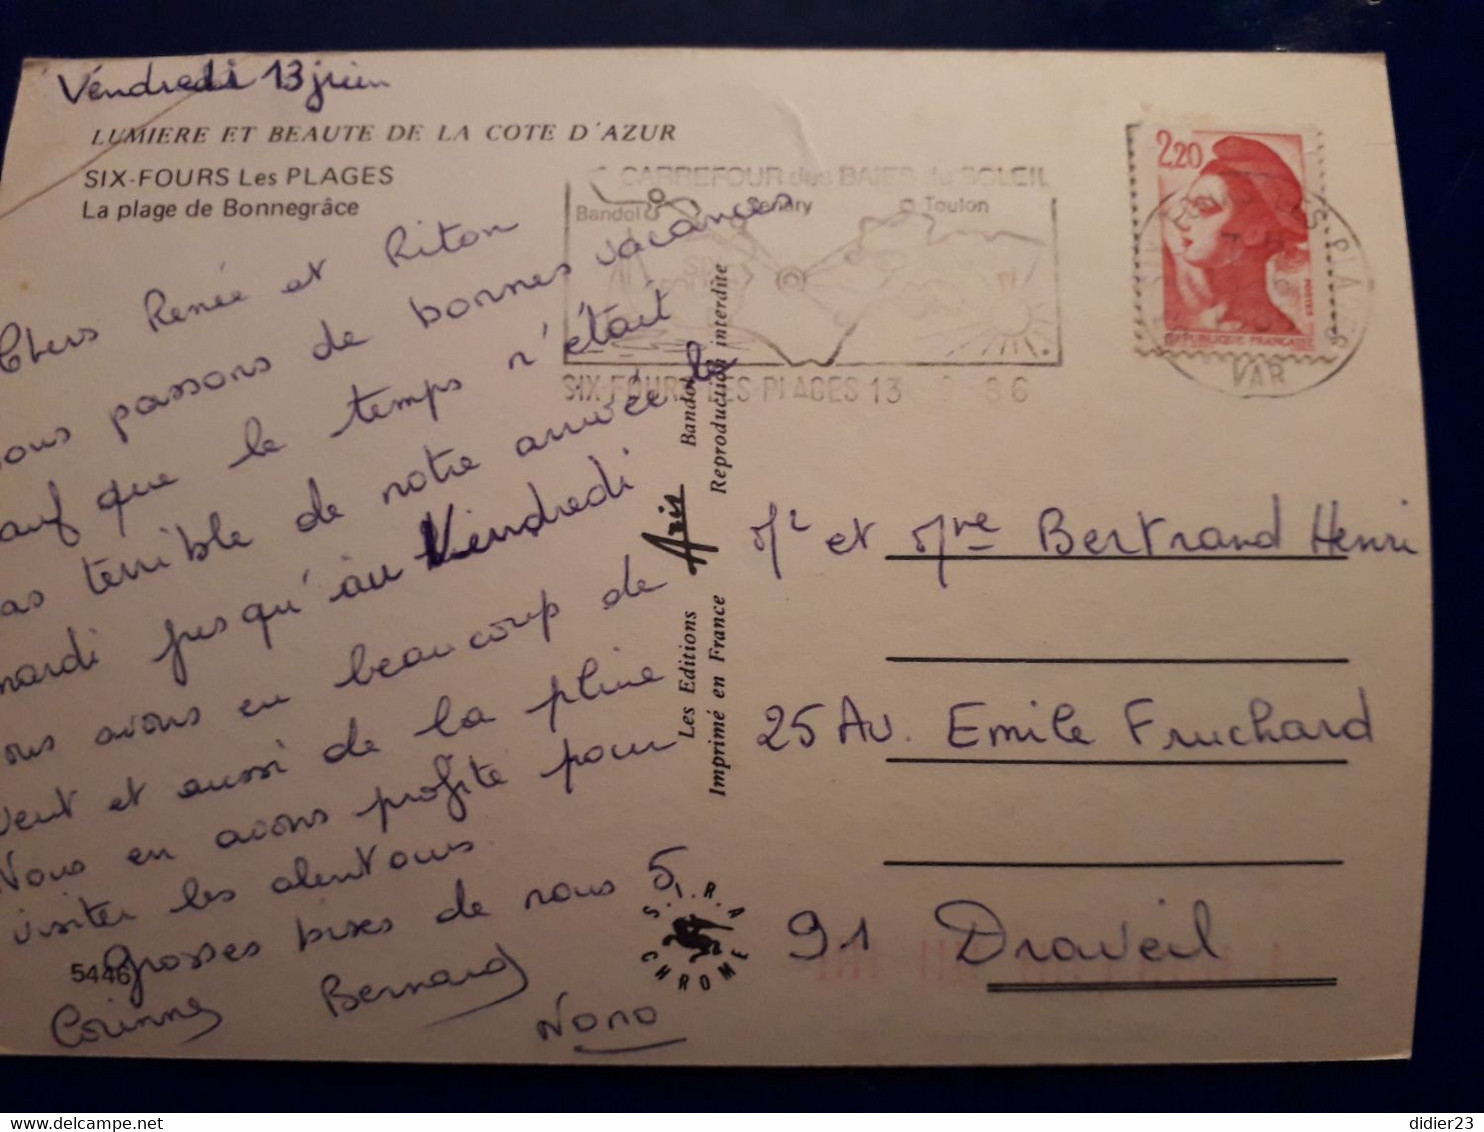 Vendredi 13 juin
LUMIERE ET BEAUTE DE LA COTE D'AZUR
SIX-FOURS Les PLAGES
La plage de Bonnegrâce
Chers Renée et Riton
ous passons de bonnes vacances
auf que le temps n'était
as terrible de notre arrivée le
mardi jusqu'au Vendredi
ous avons eu beaucoup de
vent et aussi de la pluie
Nous en avons profité pour
visiter les alentours.
Grosses bises de nous 5
5446
Corinne Bernard
Nono
CARREFOUR des BAIES du SOLEIL
Bandol Sanary Toulon
SIX-FOURS-LES-PLAGES 13 86
2,20
POSTES
REPUBLIQUE FRANCAISE
VAR
Les Editions Aris Bandol
Imprimé en France Reproduction interdite
S.I.R.A
CHROME
Mr et Mme Bertrand Henri
25 Av. Emile Fruchard
91 Draveil
didier23